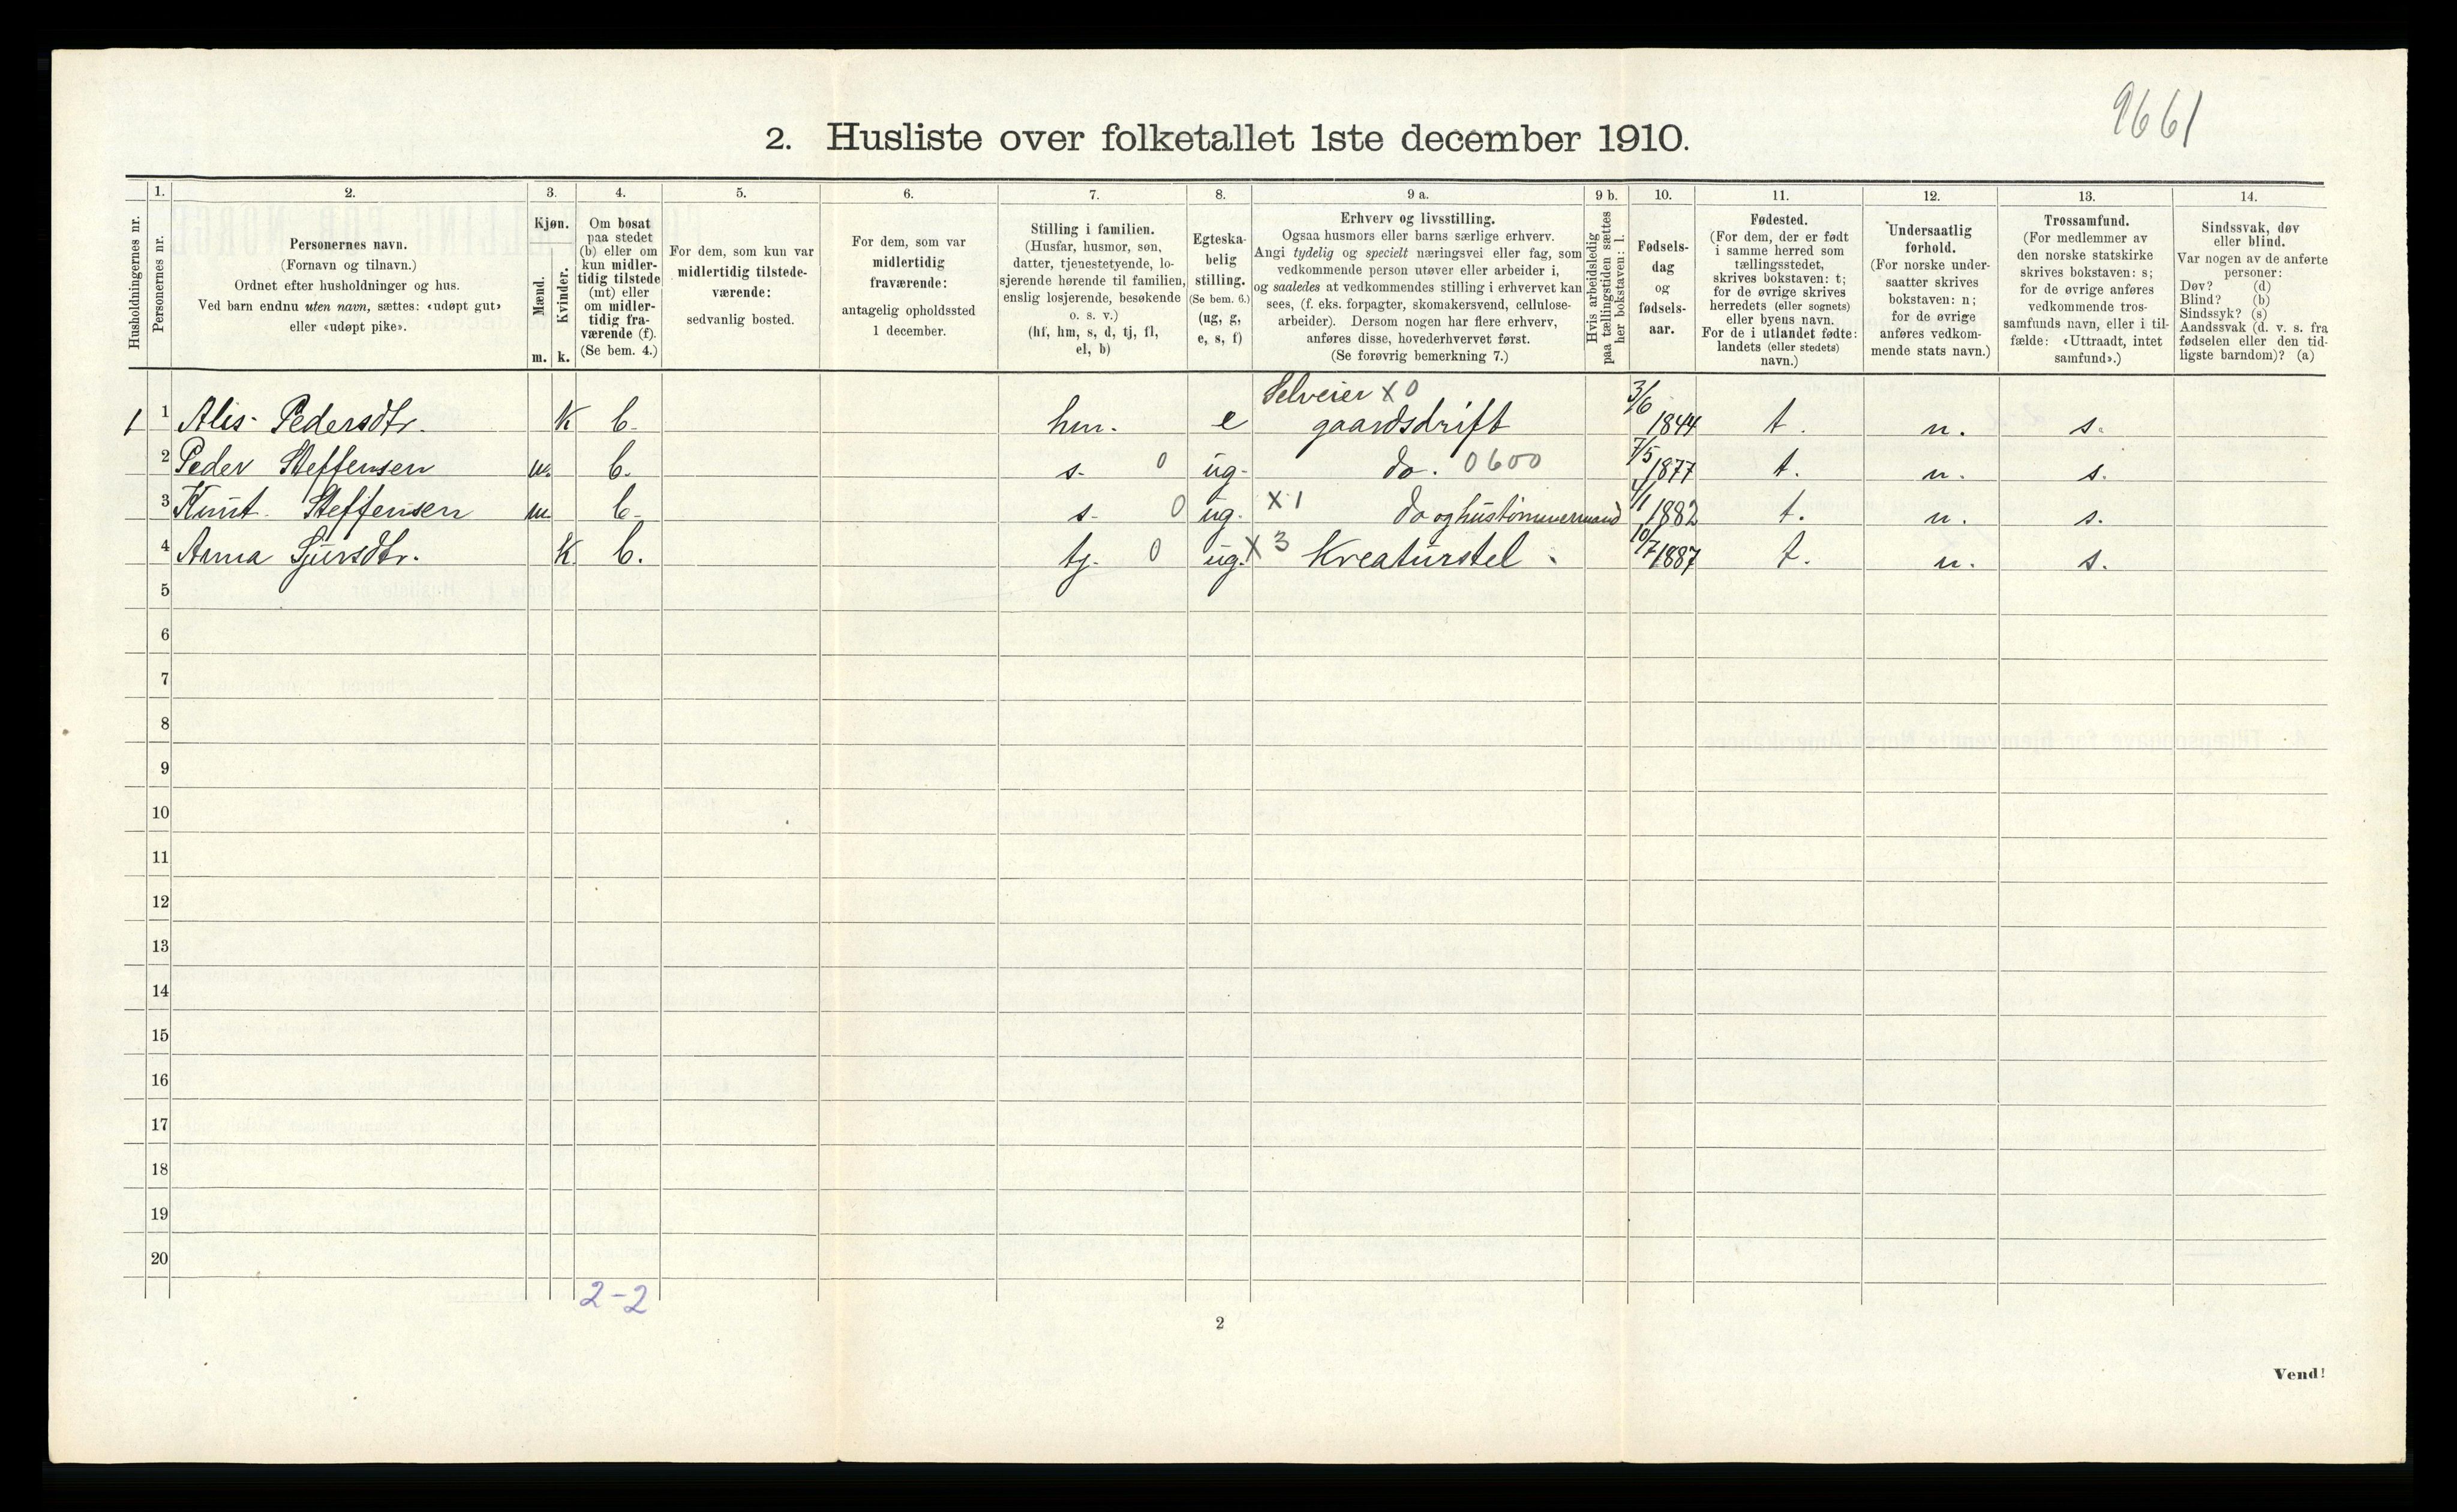 9661
2. Husliste over folketallet 1ste december 1910.
Husholdningernes nr.
1.
Personernes nr.
2.
Personernes navn.
(Fornavn og tilnavn.)
Ordnet efter husholdninger og hus.
Ved barn endnu uten navn, sættes: «udøpt gut»
eller «udøpt pike».
3.
Kjøn.
Mænd.
Kvinder.
m. k.
4.
Om bosat
paa stedet
(b) eller om
kun midler-
tidig tilstede
(mt) eller
om midler-
tidig fra-
værende (f).
(Se bem. 4.)
5.
For dem, som kun var
midlertidig tilstede-
værende:
sedvanlig bosted.
6.
For dem, som var
midlertidig
fraværende:
antagelig opholdssted
1 december.
7.
Stilling i familien.
(Husfar, husmor, søn,
datter, tjenestetyende, lo-
sjerende hørende til familien,
enslig losjerende, besøkende
o. s. v.)
(hf, hm, s, d, tj, fl,
el, b)
8.
Egteska-
belig
stilling.
(Se bem. 6.)
(ug, g,
e, s, f)
9 a.
Erhverv og livsstilling.
Ogsaa husmors eller barns særlige erhverv.
Angi tydelig og specielt næringsvei eller fag, som
vedkommende person utøver eller arbeider i,
og saaledes at vedkommendes stilling i erhvervet kan
sees, (f. eks. forpagter, skomakersvend, cellulose-
arbeider). Dersom nogen har flere erhverv,
anføres disse, hovederhvervet først.
(Se forøvrig bemerkning 7.)
9 b.
Hvis arbeidsledig
paa tællingstiden sættes
her bokstaven: l.
10.
Fødsels-
dag
og
fødsels-
aar.
11.
Fødested.
(For dem, der er født
i samme herred som
tællingsstedet,
skrives bokstaven: t;
for de øvrige skrives
herredets (eller sognets)
eller byens navn.
For de i utlandet fødte:
landets (eller stedets)
navn.)
12.
Undersaatlig
forhold.
(For norske under-
saatter skrives
bokstaven: n;
for de øvrige
anføres vedkom-
mende stats navn.)
13.
Trossamfund.
(For medlemmer av
den norske statskirke
skrives bokstaven: s;
for de øvrige anføres
vedkommende tros-
samfunds navn, eller i til-
fælde: «Uttraadt, intet
samfund».)
14.
Sindssvak, døv
eller blind.
Var nogen av de anførte
personer:
Døv? (d)
Blind? (b)
Sindssyk? (s)
Aandssvak (d. v. s. fra
fødselen eller den tid-
ligste barndom)? (a)
Selveier X 0
1 1 Alis Pedersdtr. K b. hm. e gaardsdrift 3/6 1844 t. n. s.
2 Peder Steffensen m. b. s. 0 ug. do. 0600 7/5 1877 t. n. s.
3 Knut Steffensen m. b. s. 0 ug. X 1 do og hustømmermand 4/1 1882 t. n. s.
4 Anna Sjursdtr. K. b. tj. 0 ug. X 3 Kreaturstel. 10/7 1887 t. n. s.
5
6
7
8
9
10
11
12
13
14
15
16
17
18
19
20
2-2
2
Vend!